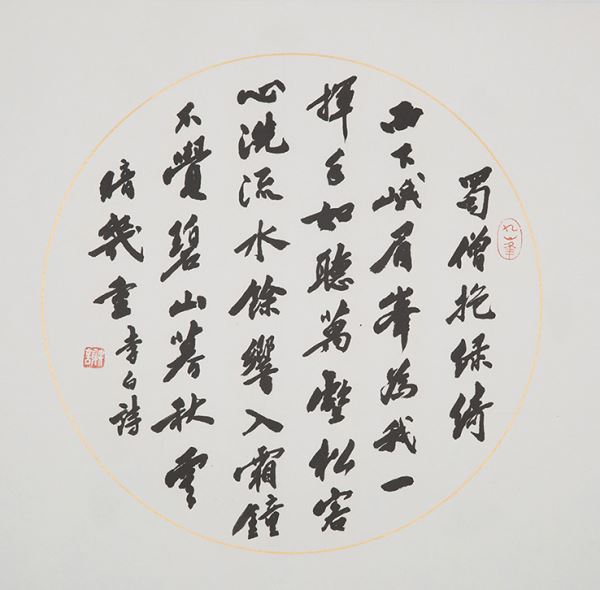 蜀僧抱綠綺
西下峨眉峯為我一
揮手如聽萬壑松客
心洗流水餘響入霜鐘
不覺碧山暮秋雲
暗幾重李白詩